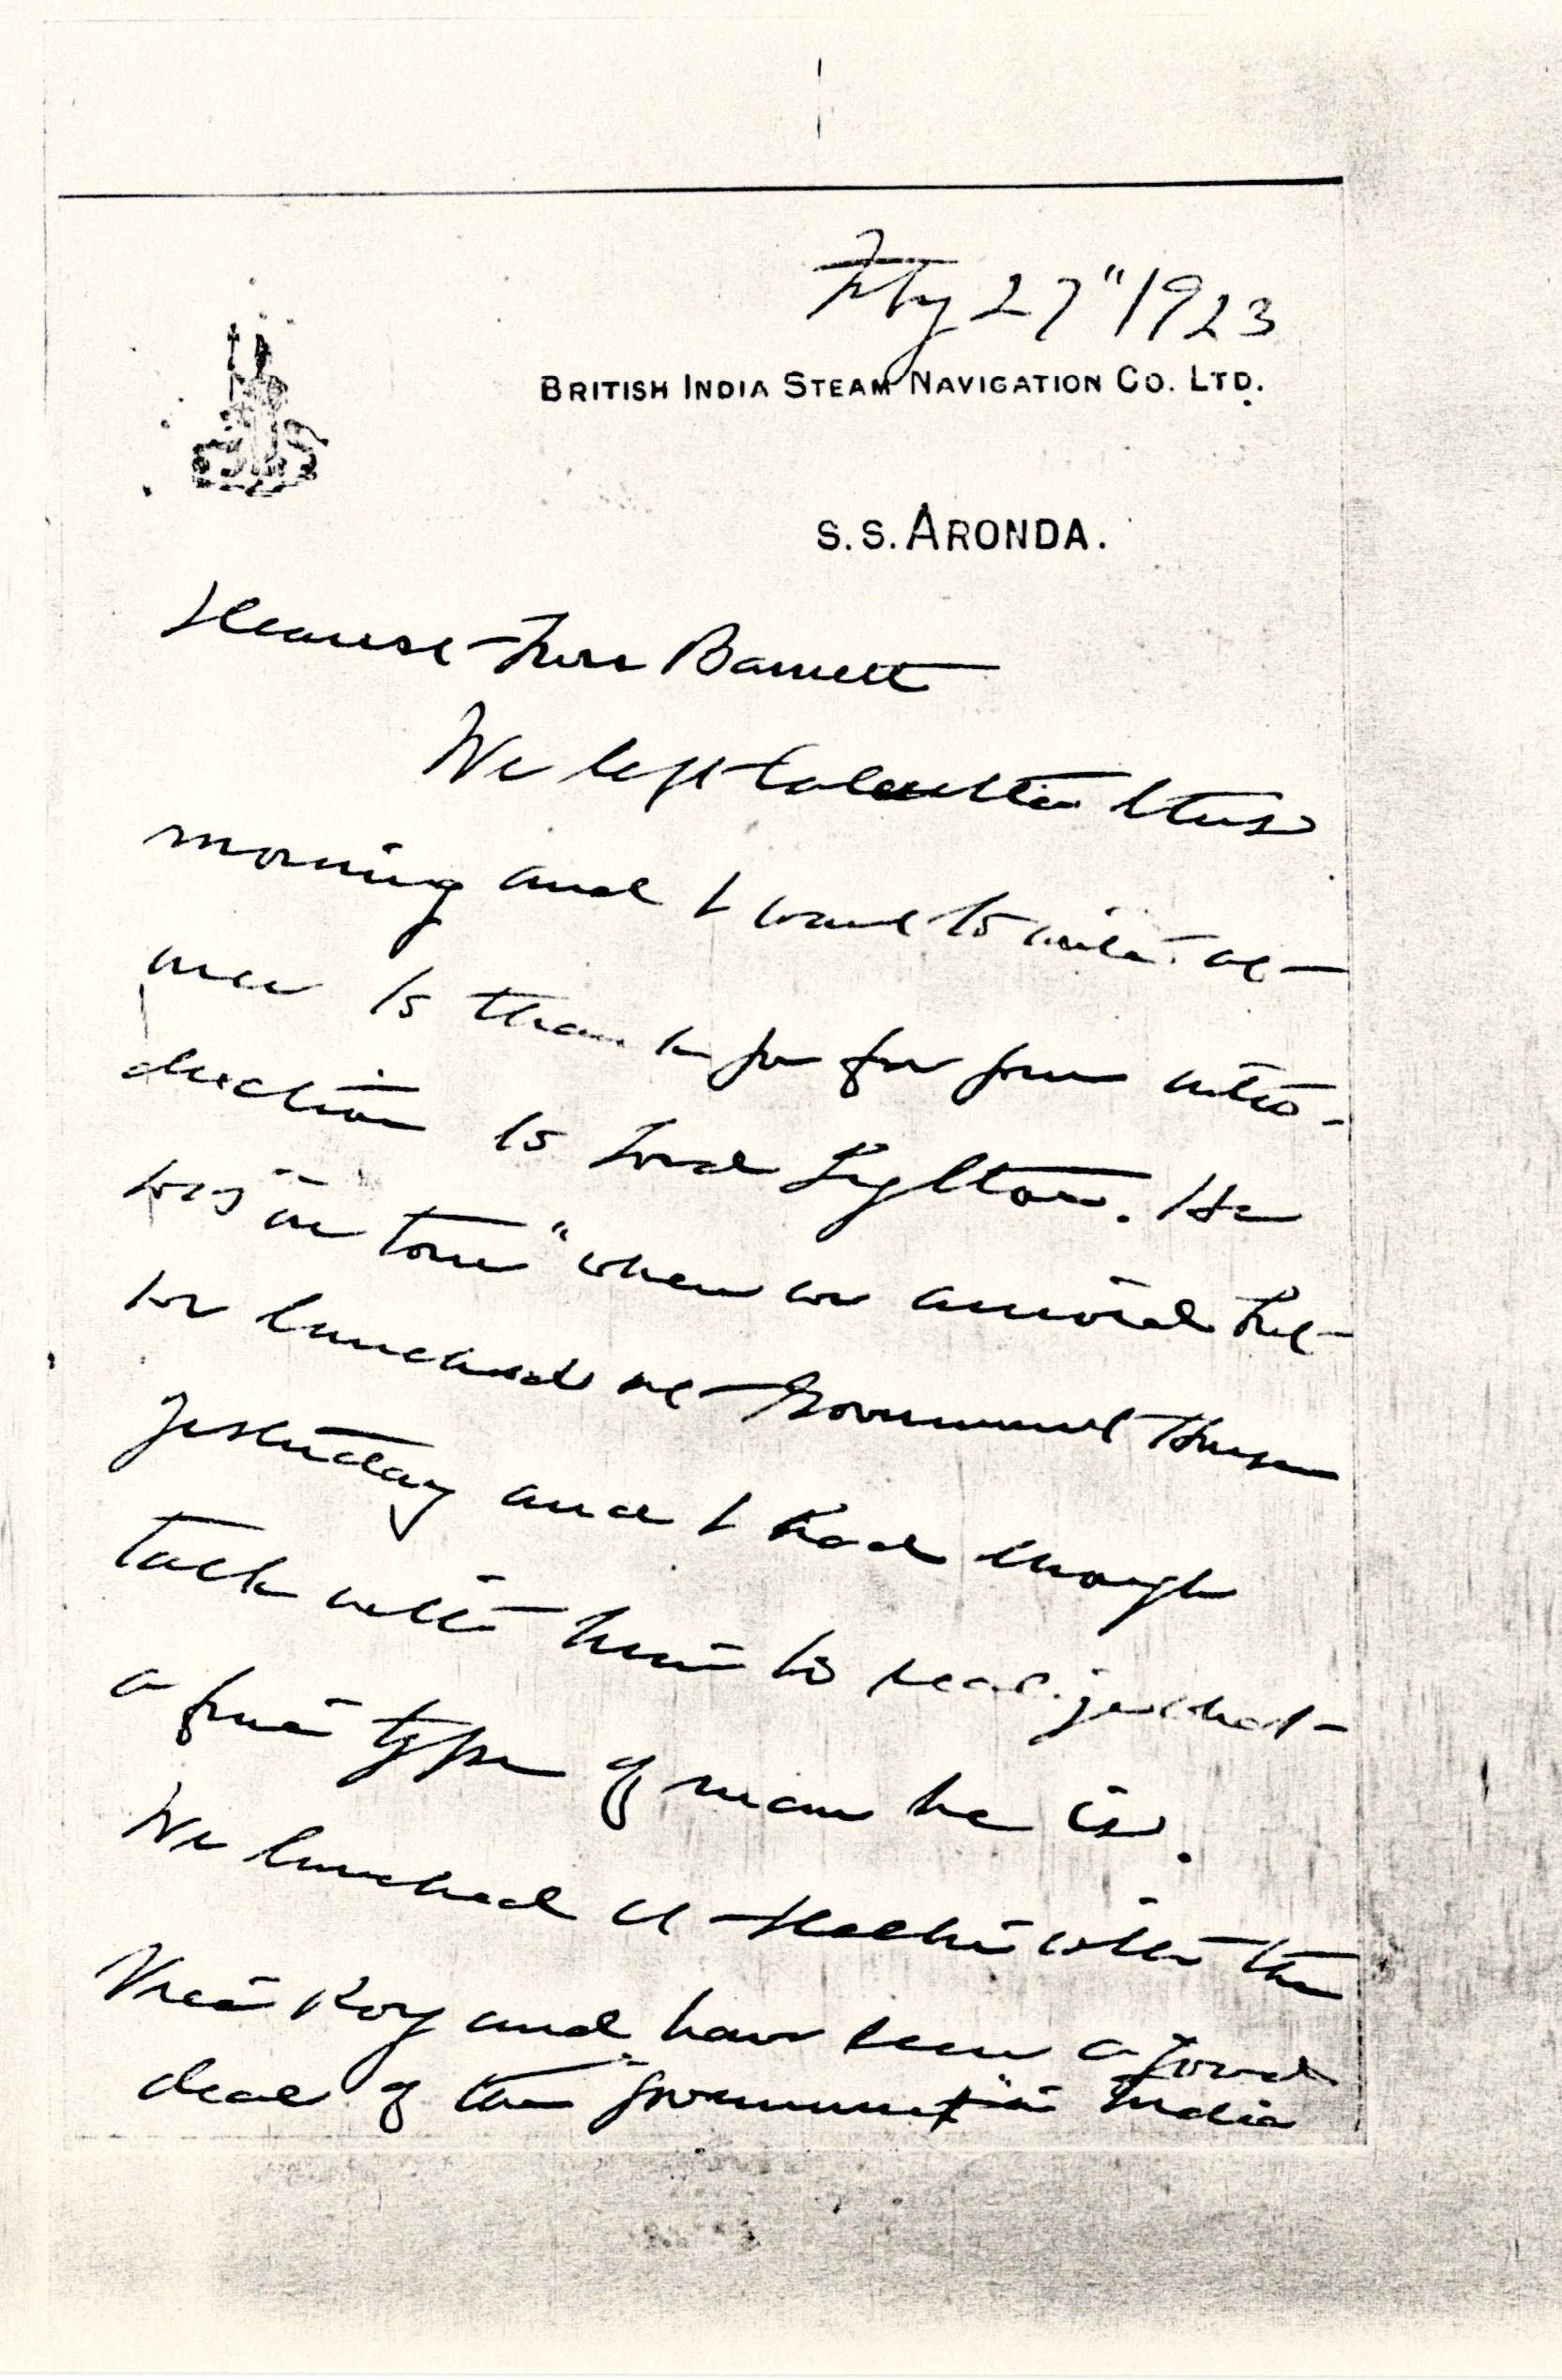 Feby 27" 1923
BRITISH INDIA STEAM NAVIGATION CO. LTD.
S.S. ARONDA.
Dearest Mrs Barnett
We left Calcutta this
morning and I want to write at
once to thank you for your intro-
duction to Lord Lytton. He
was "on tour" when we arrived but
we lunched at Government House
yesterday and I had enough
talk with him to realize what
a fine type of man he is.
We lunched at Delhi with the
Vice Roy and have seen a good
deal of the "Government" in India